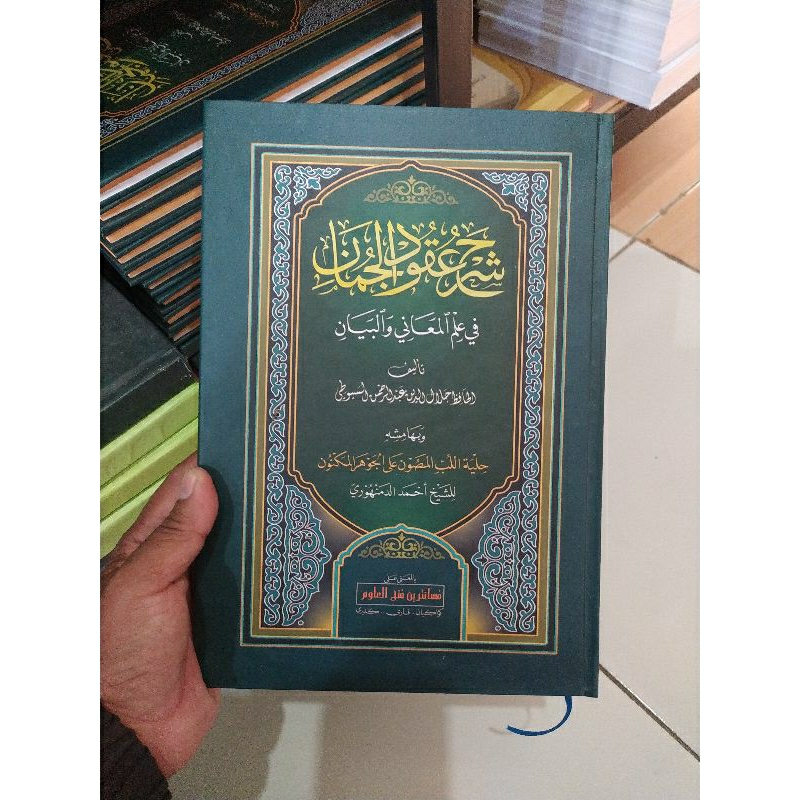 شرح عُقُود الجُمان
في عِلْمِ المَعَاني وَالبَيَانِ
تأليف
الحافظ جلال الدين عبد الرحمن السيوطي
وبهامشه
حِلْيَة اللُّبِّ المَصُون عَلى الجَوْهَر المَكنُون
للشَّيْخ أحْمَد الدمَنْهُوري
بالمعنى على
فسانترين فتح العلوم